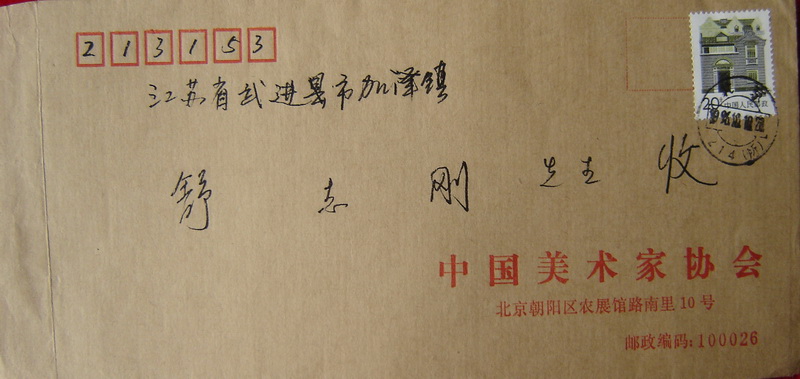 213153
江苏省武进县市加泽镇
舒志刚 先生 收
20 中国人民邮政
中国美术家协会
北京朝阳区农展馆路南里10号
邮政编码:100026